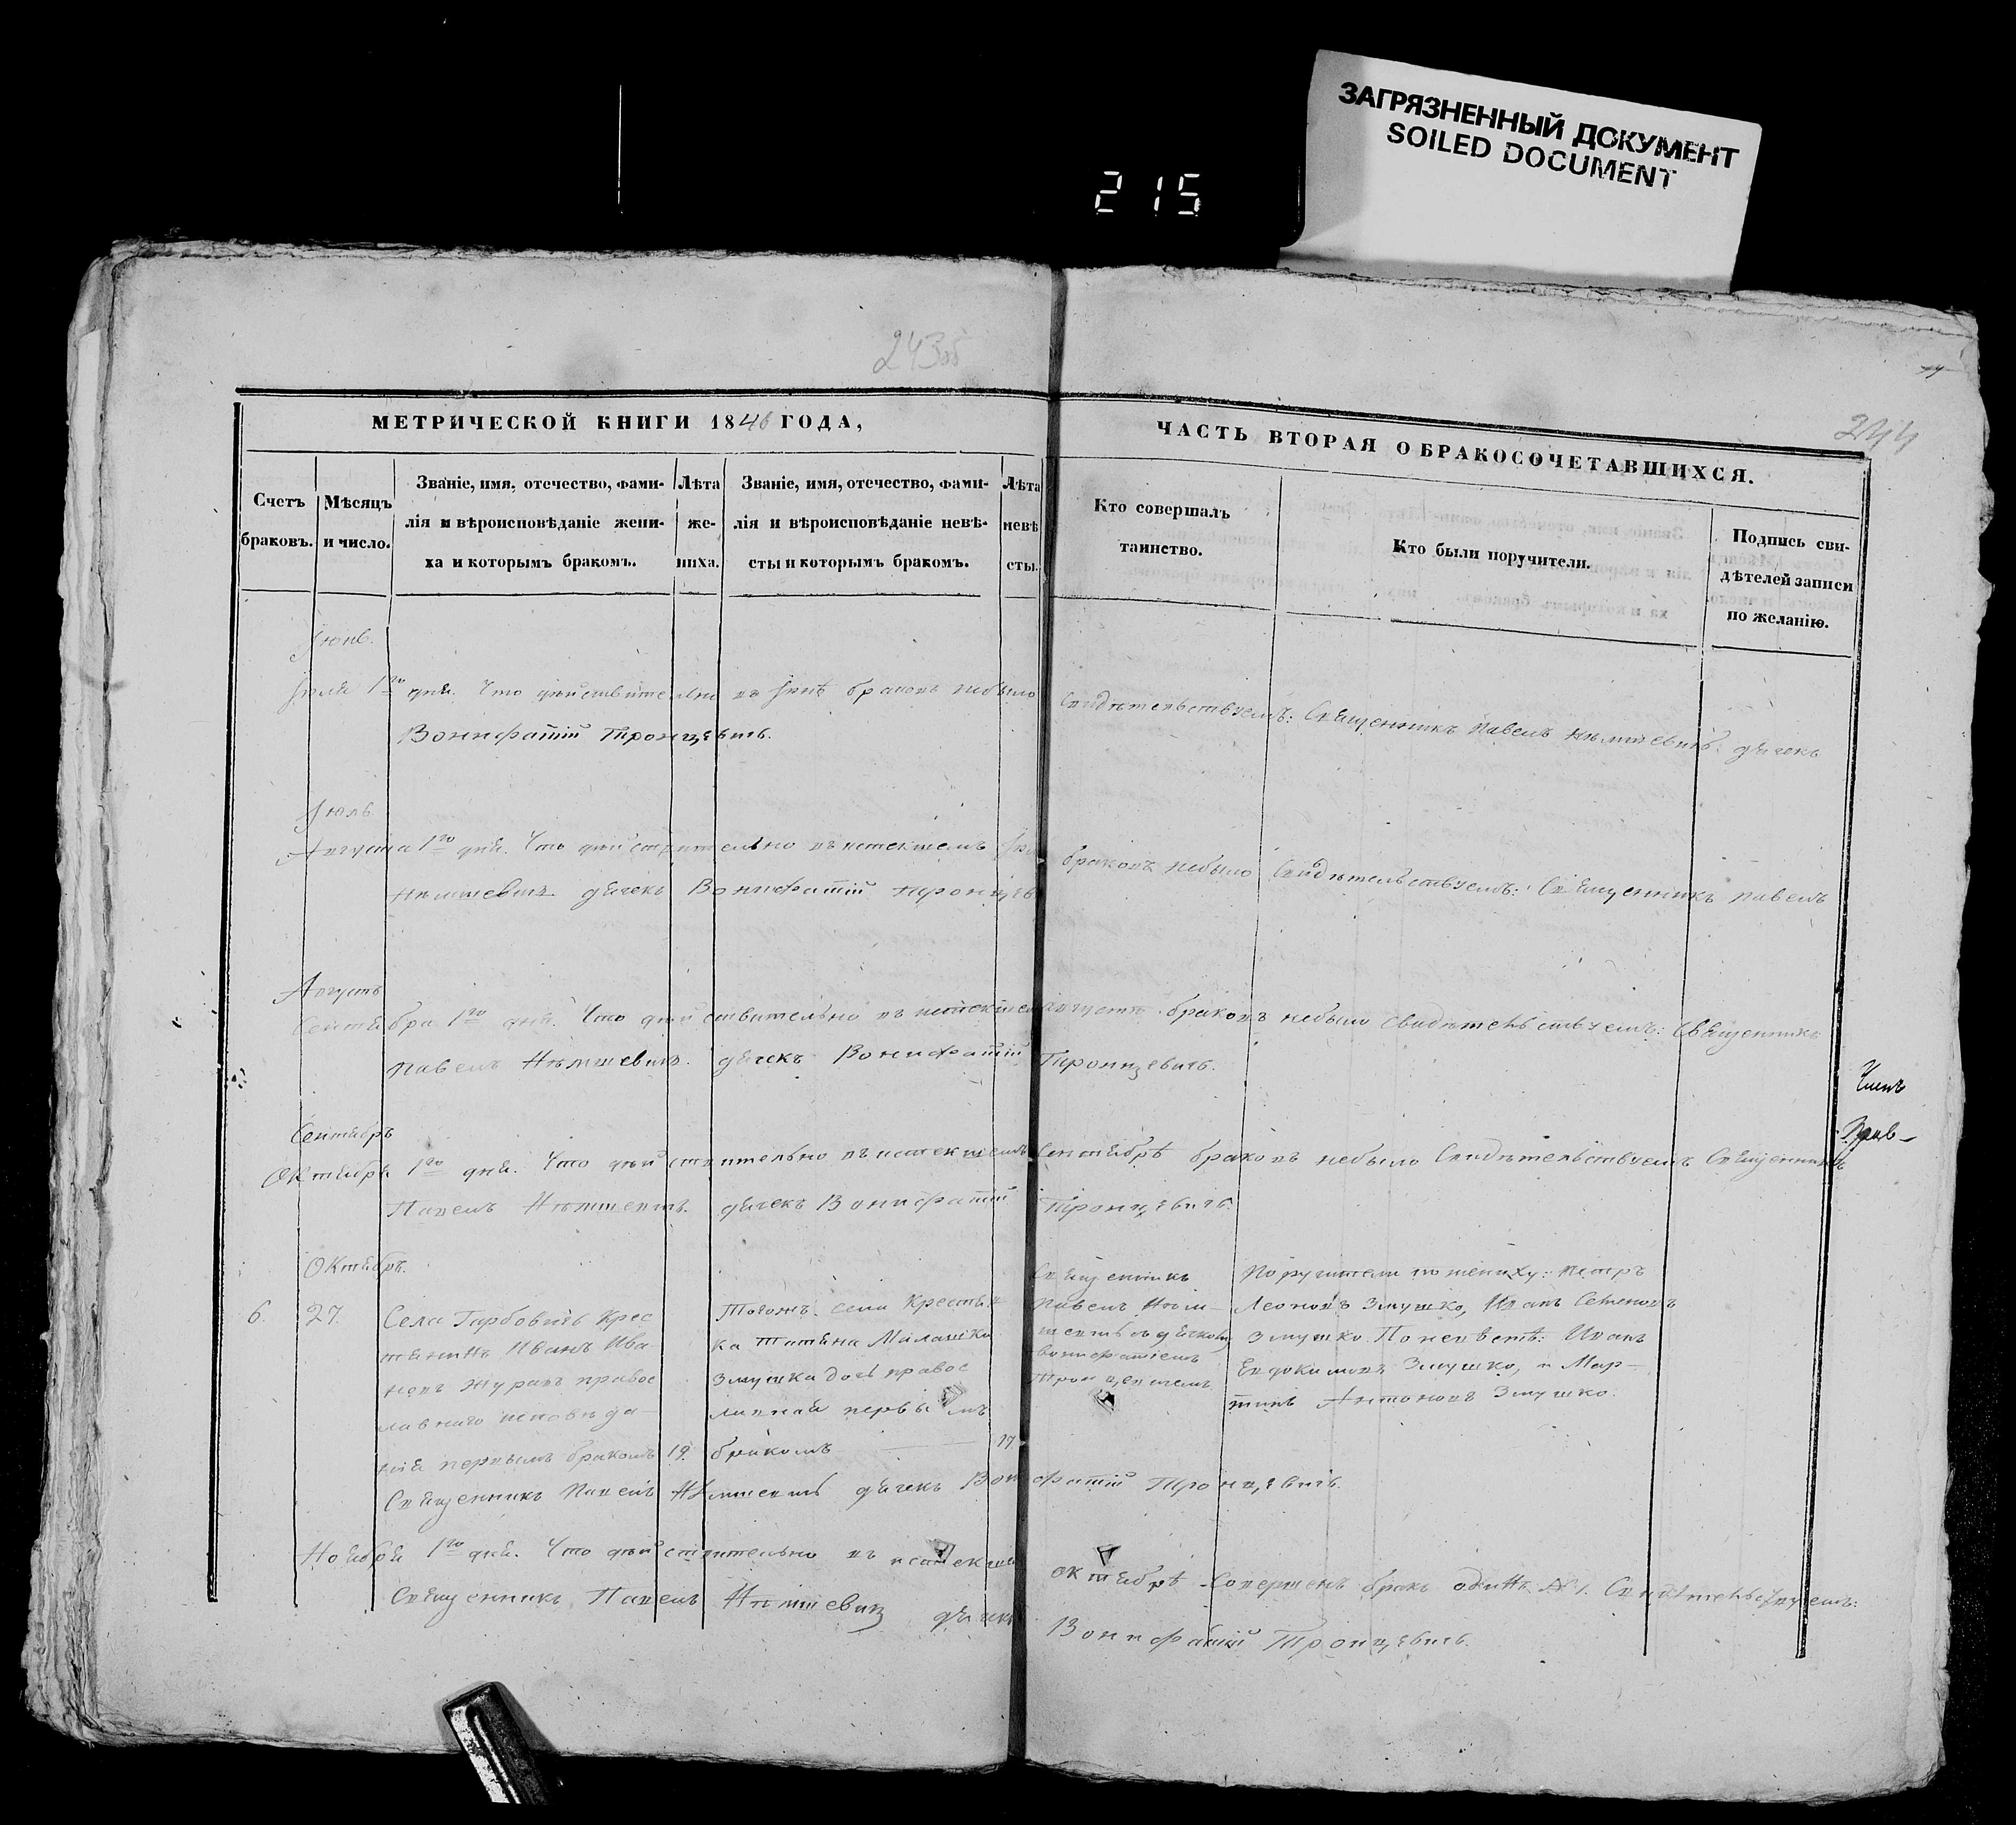 ЗАГРЯЗНЕННЫЙ ДОКУМЕНТ
SOILED DOCUMENT
215
243об
244
МЕТРИЧЕСКОЙ КНИГИ 1846 ГОДА,
ЧАСТЬ ВТОРАЯ О БРАКОСОЧЕТАВШИХСЯ.
Счетъ браковъ.
Мѣсяцъ и число.
Званіе, имя, отечество, фами-
лія и вѣроисповѣданіе жени-
ха и которымъ бракомъ.
Лѣта
же-
ниха.
Званіе, имя, отечество, фами-
лія и вѣроисповѣданіе невѣ-
сты и которымъ бракомъ.
Лѣта
невѣ
сты.
Кто совершалъ
таинство.
Кто были поручители.
Подпись сви-
дѣтелей записи
по желанію.
Іюнь.
Іюля 1го дня. Что дѣйствительно въ Іюнѣ браковъ небыло Свидѣтельствуемъ: Священникъ Павелъ Нѣмшевичъ. дячекъ
Вонифатій Тронцевичъ.
Іюль
Августа 1го дня. Что дѣйствительно въ истекшемъ браковъ небыло Свидѣтельствуемъ: Священникъ Павелъ
Нѣмшевичъ дячекъ Вонифатій
Августъ
Сентября 1го дня. Что дѣйствительно въ истекшем августѣ браковъ небыло свидѣтельствуемъ: Священникъ
Павелъ Нѣмшевичъ. дячекъ Вонифатій Тронцевичъ.
Членъ
Прав-
Сентябрь
Октября 1го дня. Что дѣйствительно въ истекшемъ Сентябрѣ браковъ небыло Свидѣтельствуемъ Священникъ
Павелъ Нѣмшевичъ. дячекъ Вонифатій Тронцевичъ.
Октябрь.
6. 27.
Села Гарбовичъ Крес
тянинъ Иванъ Ива
новъ Журавъ правос
лавнаго исповѣда-
нія первымъ бракомъ 19.
Тогожъ села Крестьян
ка Татьяна Малашко
Змушка дочь правос
лавная первымъ
бракомъ 17
Священникъ
Павелъ Нѣм-
шевичъ съ дячкомъ
Вонифатіемъ
Тронцевичемъ
Поручители по жениху: Петръ
Леоновъ Змушко, Иванъ Семеновъ
Змушко. По невѣстѣ: Иванъ
Евдокимовъ Змушко, и Мар-
тинъ Антоновъ Змушко.
Священникъ Павелъ Нѣмшевичъ дячекъ Вонифатій Тронцевичъ.
Ноября 1го дня. Что дѣйствительно въ истекшем октябрѣ совершенъ бракъ одинъ № 1. Свидѣтельствуемъ:
Священникъ Павелъ Нѣмшевичъ дячекъ Вонифатій Тронцевичъ.